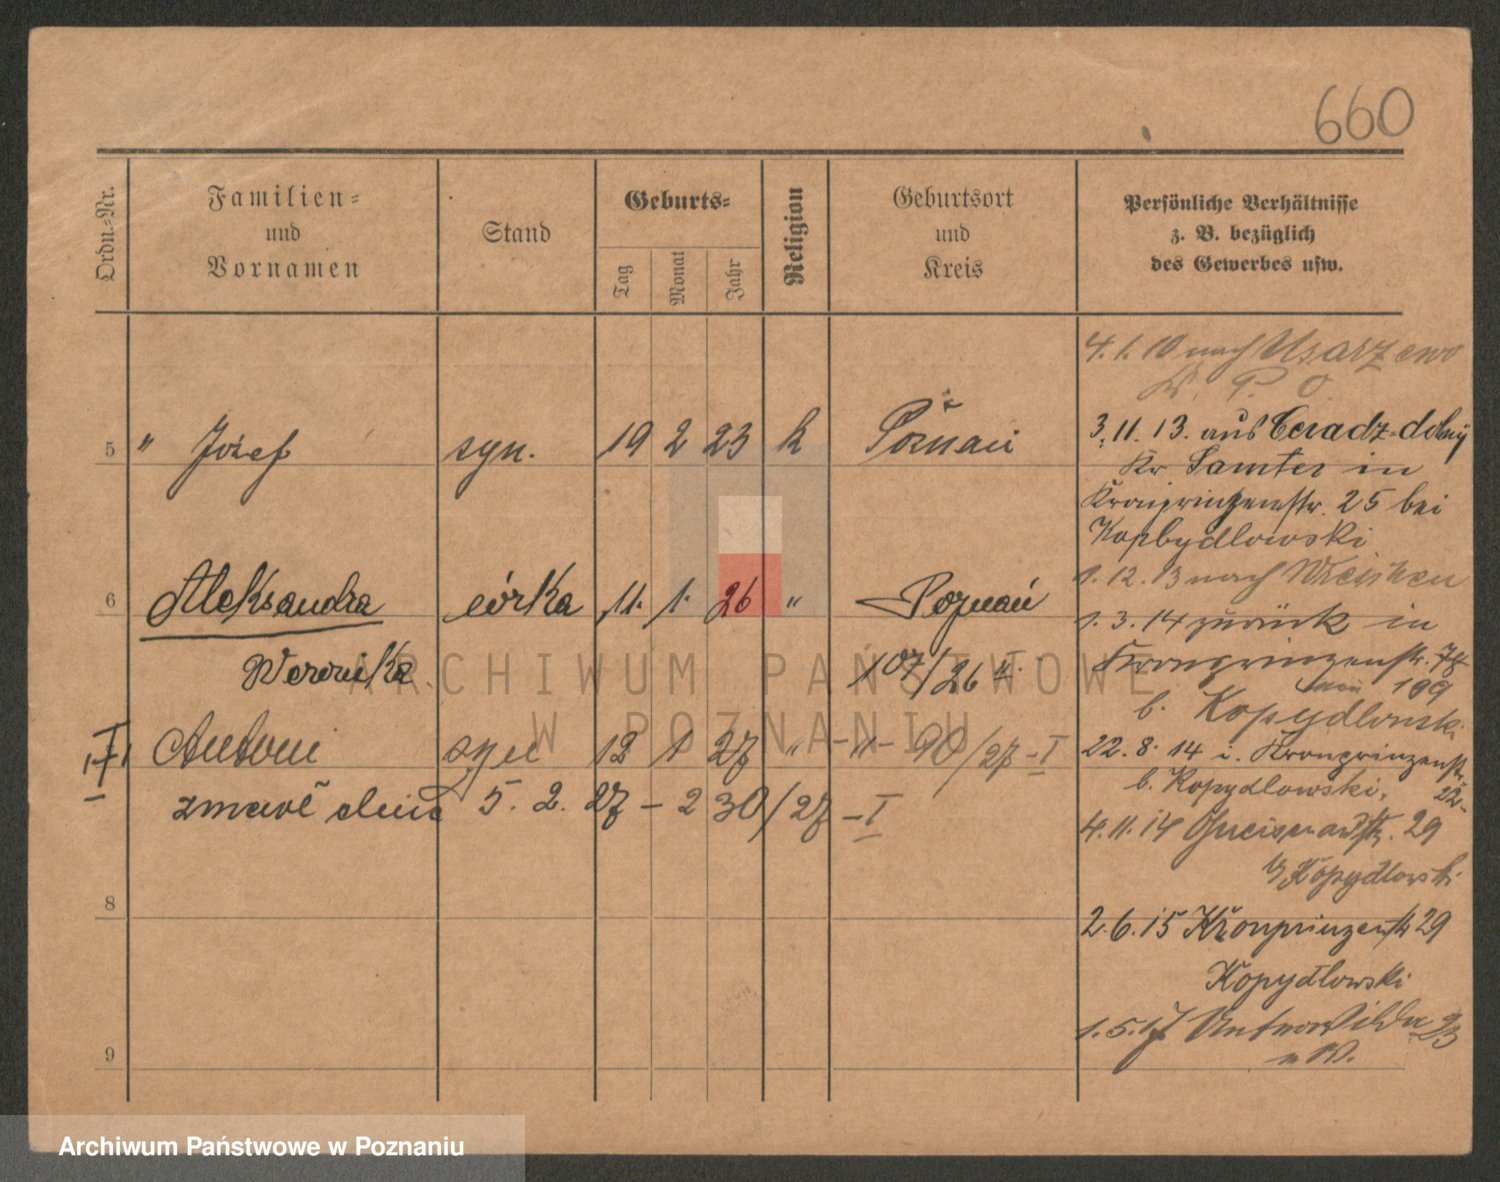 660
Ordn.-Nr.
Familien-
und
Vornamen
Stand
Geburts-
Tag
Monat
Jahr
Religion
Geburtsort
und
Kreis
Persönliche Verhältnisse
z. B. bezüglich
des Gewerbes usw.
5 " Józef syn. 19 2 23 k Poznań
6 Aleksandra córka 11. 1. 26 " Poznań
Weronika 107/26 II.
Antoni syn 12 1 27 " -"- 90/27-I
zmarł dnia 5. 2. 27 - 2 30/27 - I
8
9
4.1.10 nach Usarzewo
Kr. P. O.
3.11.13. aus Ceradz-dolny
Kr Samter in
Kronprinzenstr. 25 bei
Kopydlowski
1.12.13 nach Wreschen
1.3.14 zurück in
Kronprinzenstr. 78
109
b. Kopydlowski
22.8.14 i. Kronprinzenstr.
b. Kopydlowski, 22.
4.11.14 Gneisenaustr. 29
b/Kopydlowski
2.6.15 Kronprinzenstr 29
Kopydlowski
1.5.17 Unterwilda 23
ARCHIWUM PAŃSTWOWE
W POZNANIU
Archiwum Państwowe w Poznaniu